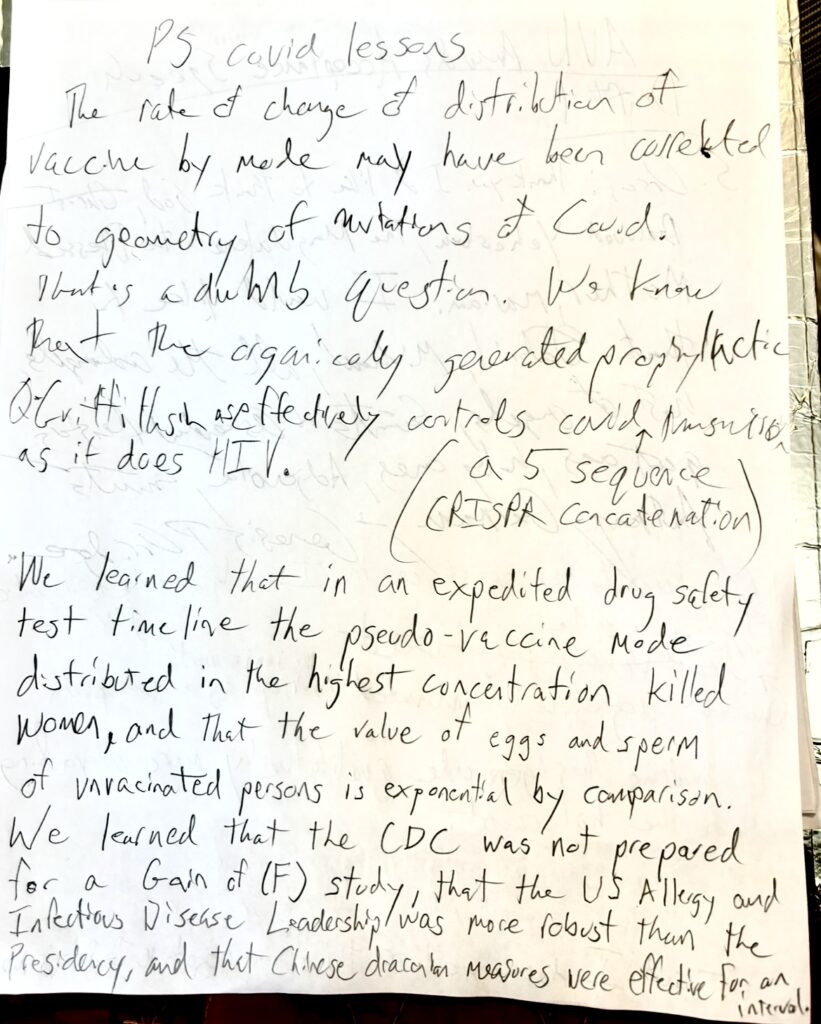 PS covid lessons
The rate of change of distribution of
vaccine by mode may have been correlated
to geometry of mutations of Covid.
That is a dumb question. We know
that the organically generated prophylactic
Q-Griffithsin as effectively controls covid transmission
as it does HIV.
(a 5 sequence
CRISPR concatenation)
"We learned that in an expedited drug safety
test timeline the pseudo-vaccine mode
distributed in the highest concentration killed
women, and that the value of eggs and sperm
of unvacinated persons is exponential by comparison.
We learned that the CDC was not prepared
for a Gain of (F) study, that the US Allergy and
Infectious Disease Leadership was more robust than the
Presidency, and that Chinese draconian measures were effective for an
interval.